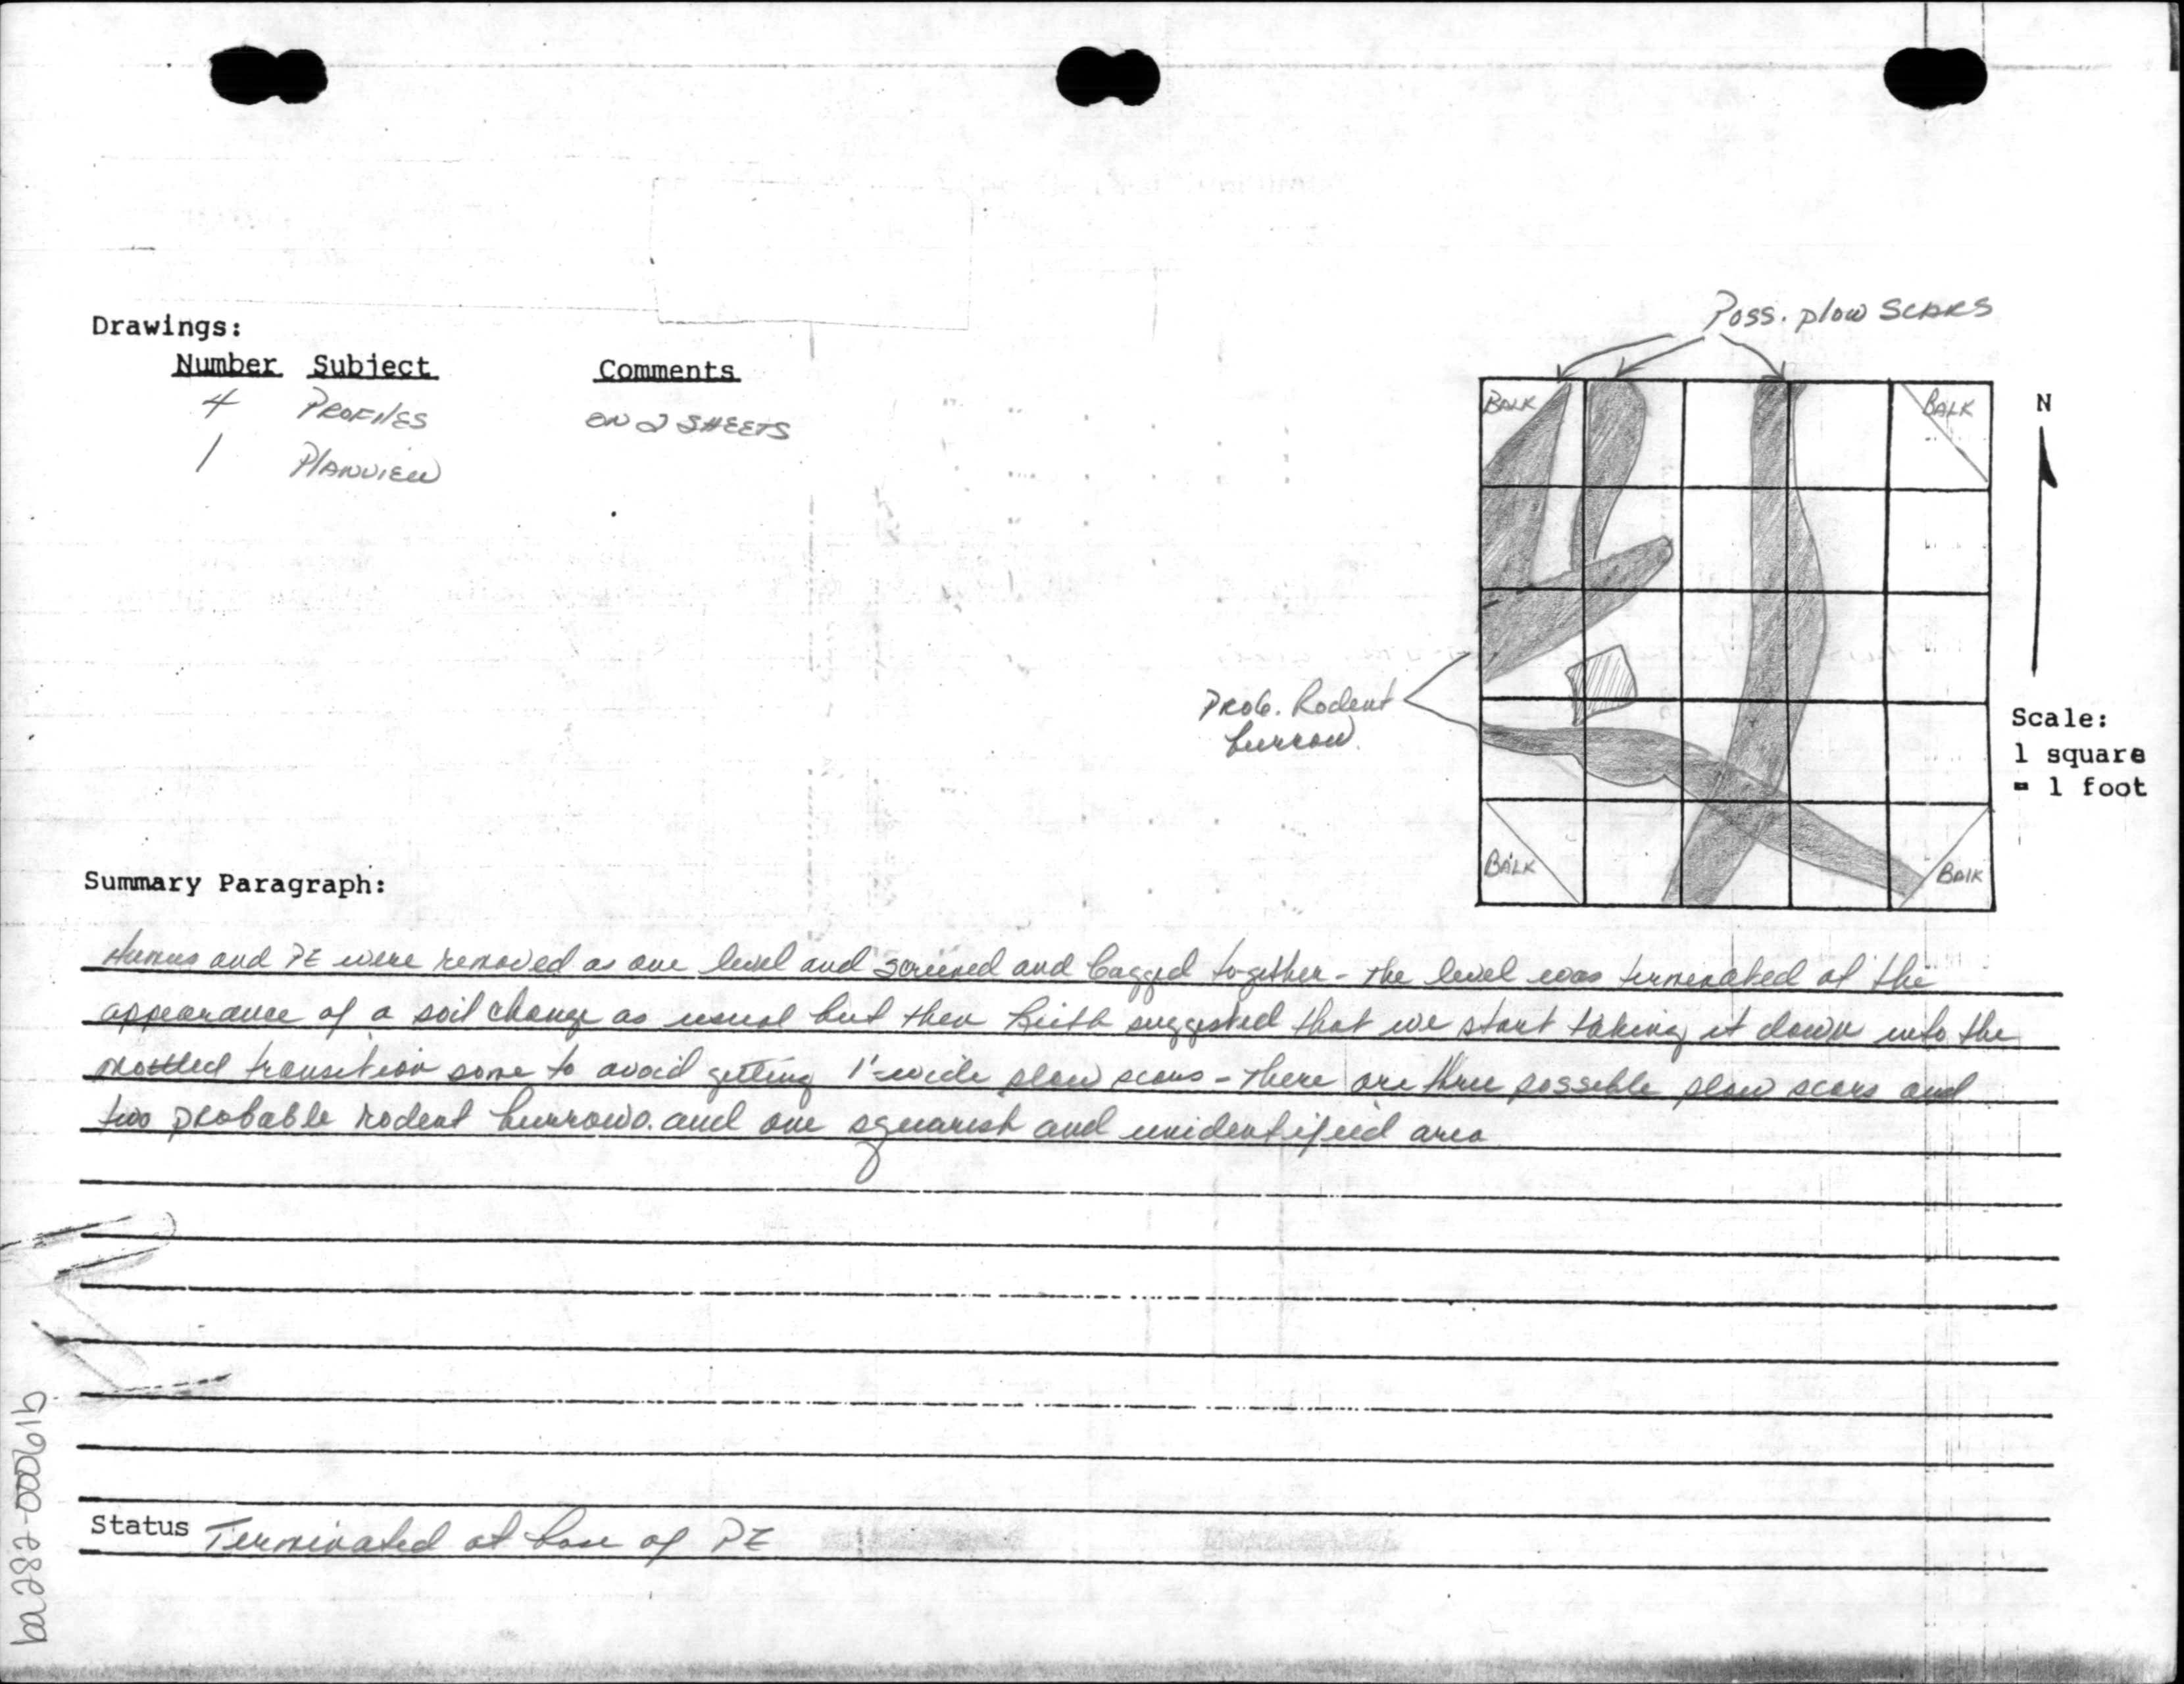 Poss. plow SCARS
Drawings:
Number Subject Comments
4 PROFILES ON 2 SHEETS
1 PLANVIEW
BALK BALK
N
Prob. Rodent
burrow.
Scale:
1 square
= 1 foot
BALK BALK
Summary Paragraph:
Humus and PZ were removed as one level and screened and bagged together - the level was terminated at the
appearance of a soil change as usual but then Keith suggested that we start taking it down into the
mottled transition some to avoid getting 1'-wide plow scars - There are three possible plow scars and
two probable rodent burrows. and one squarish and unidentified area
Status Terminated at base of PZ